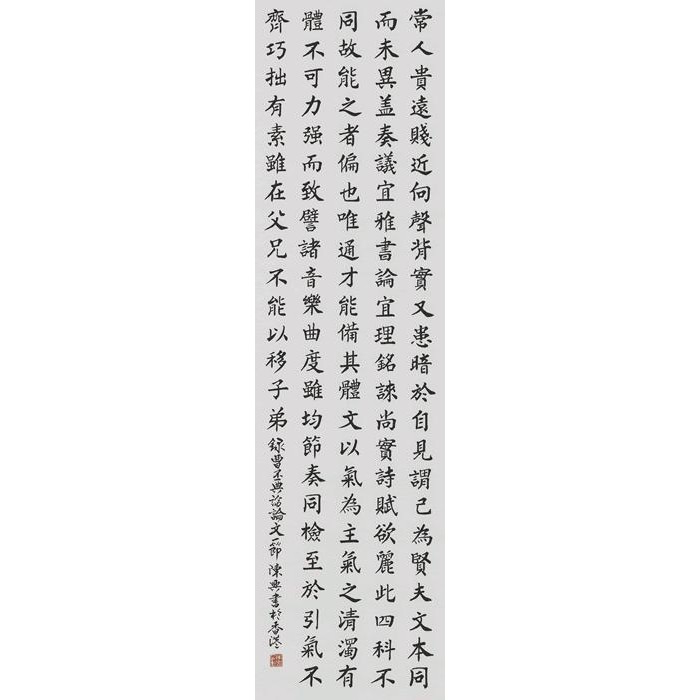 常人貴遠賤近向聲背實又患暗於自見謂己為賢夫文本同
而末異盖奏議宜雅書論宜理銘誄尚實詩賦欲麗此四科不
同故能之者偏也唯通才能備其體文以氣為主氣之清濁有
體不可力强而致譬諸音樂曲度雖均節奏同檢至於引氣不
齊巧拙有素雖在父兄不能以移子弟 錄曹丕典論論文一節 陳興書於香港